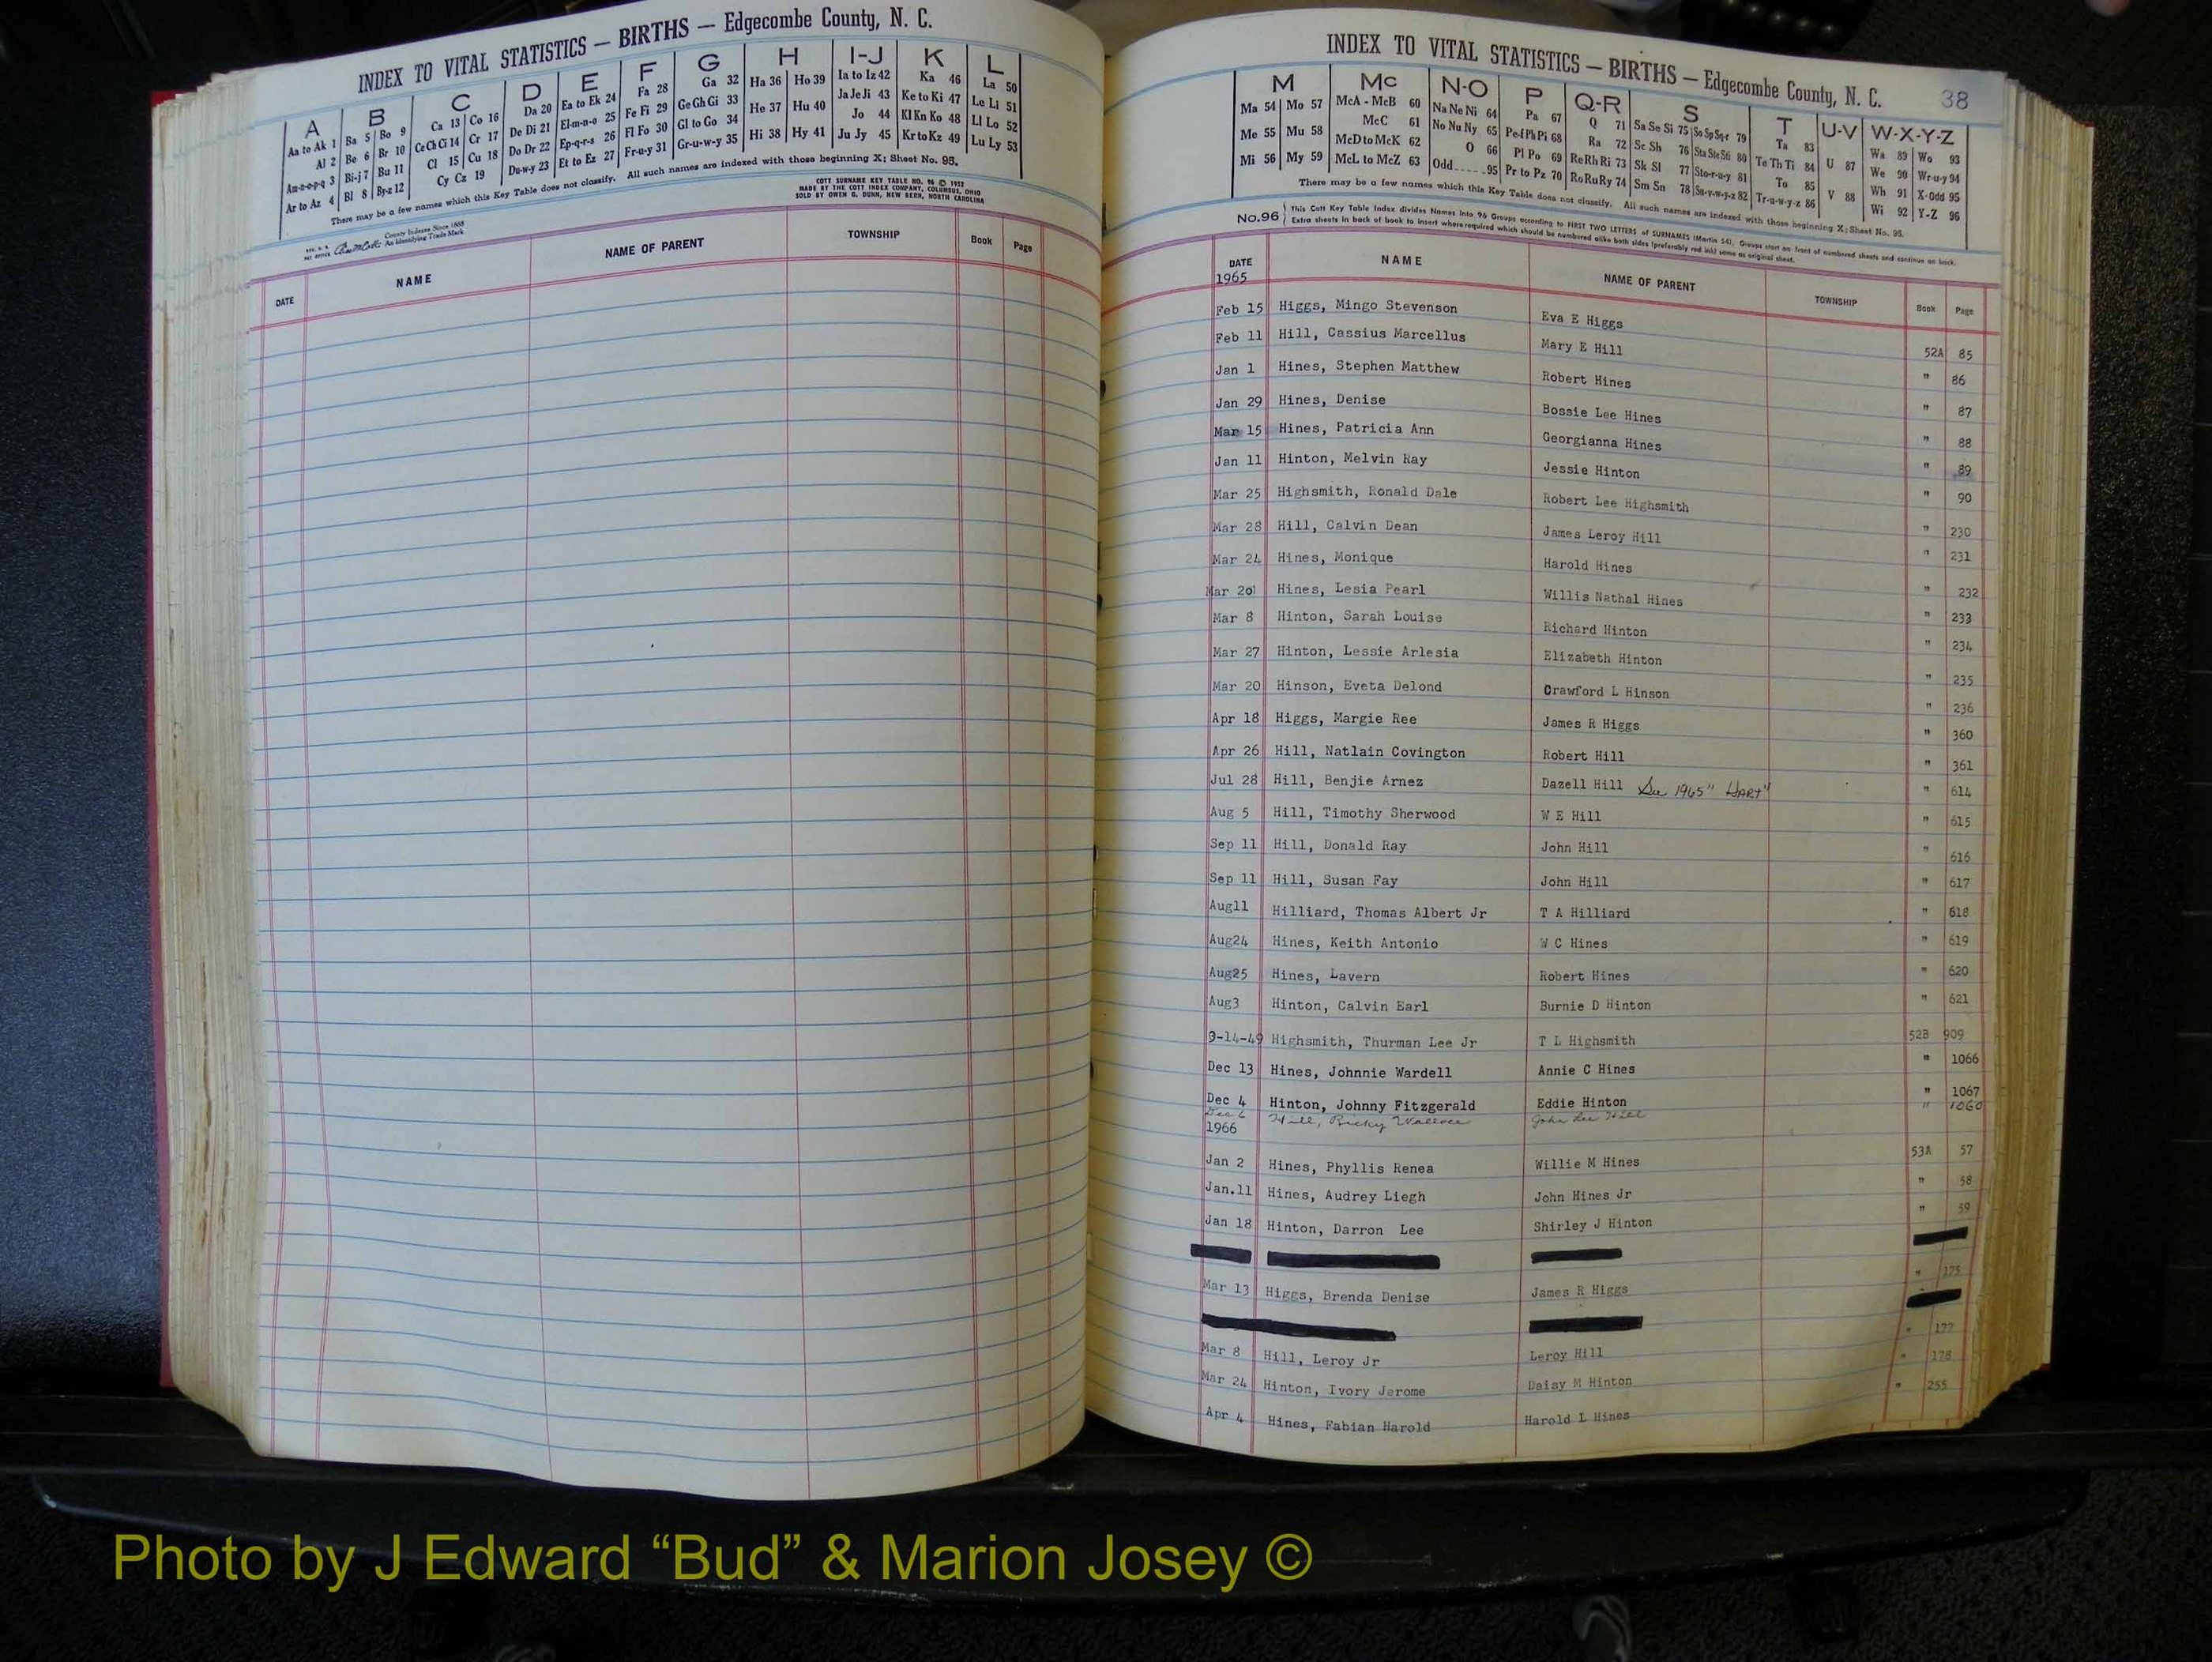 INDEX TO VITAL STATISTICS — BIRTHS — Edgecombe County, N. C.
A B C D E F G H I-J K L
Aa to Ak 1 Ba 5 Bo 9 Ca 13 Co 16 Da 20 Ea to Ek 24 Fa 28 Ga 32 Ha 36 Ho 39 Ia to Iz 42 Ka 46 La 50
Al 2 Be 6 Br 10 Ce Ch Ci 14 Cr 17 De Di 21 El-m-n-o 25 Fe Fi 29 Ge Gh Gi 33 He 37 Hu 40 Ja Je Ji 43 Ke to Ki 47 Le Li 51
Am-n-o-p-q 3 Bi-j 7 Bu 11 Cl 15 Cu 18 Do Dr 22 Ep-q-r-s 26 Fl Fo 30 Gl to Go 34 Hi 38 Hy 41 Jo 44 Kl Kn Ko 48 Ll Lo 52
Ar to Az 4 Bl 8 By-z 12 Cy Cz 19 Du-w-y 23 Et to Ez 27 Fr-u-y 31 Gr-u-w-y 35 Ju Jy 45 Kr to Kz 49 Lu Ly 53
There may be a few names which this Key Table does not classify. All such names are indexed with those beginning X; Sheet No. 95.
County Indexes Since 1888
An Identifying Trade Mark
COTT SURNAME KEY TABLE NO. 96 © 1952
MADE BY THE COTT INDEX COMPANY, COLUMBUS, OHIO
SOLD BY OWEN G. DUNN, NEW BERN, NORTH CAROLINA
DATE NAME NAME OF PARENT TOWNSHIP Book Page
INDEX TO VITAL STATISTICS — BIRTHS — Edgecombe County, N. C. 38
M Mc N-O P Q-R S T U-V W-X-Y-Z
Ma 54 Mo 57 McA - McB 60 Na Ne Ni 64 Pa 67 Q 71 Sa Se Si 75 So Sp Sq-r 79 Ta 83 U 87 Wa 89 Wo 93
Me 55 Mu 58 McC 61 No Nu Ny 65 Pe-f Ph Pi 68 Ra 72 Sc Sh 76 Sta Ste Sti 80 Te Th Ti 84 V 88 We 90 Wr-u-y 94
Mi 56 My 59 McD to McK 62 O 66 Pl Po 69 Re Rh Ri 73 Sk Sl 77 Sto-r-u-y 81 To 85 Wh 91 X-Odd 95
McL to McZ 63 Odd 95 Pr to Pz 70 Ro Ru Ry 74 Sm Sn 78 Su-v-w-y-z 82 Tr-u-w-y-z 86 Wi 92 Y-Z 96
There may be a few names which this Key Table does not classify. All such names are indexed with those beginning X; Sheet No. 95.
No. 96 This Cott Key Table Index divides Names into 96 Groups according to FIRST TWO LETTERS of SURNAMES (Martin 54). Groups start on front of numbered sheets and continue on back.
Extra sheets in back of book to insert where required which should be numbered alike both sides (preferably red ink) same as original sheet.
DATE NAME NAME OF PARENT TOWNSHIP Book Page
1965
Feb 15 Higgs, Mingo Stevenson Eva E Higgs 52A 85
Feb 11 Hill, Cassius Marcellus Mary E Hill " 86
Jan 1 Hines, Stephen Matthew Robert Hines " 87
Jan 29 Hines, Denise Bossie Lee Hines " 88
Mar 15 Hines, Patricia Ann Georgianna Hines " 89
Jan 11 Hinton, Melvin Ray Jessie Hinton " 90
Mar 25 Highsmith, Ronald Dale Robert Lee Highsmith " 230
Mar 28 Hill, Calvin Dean James Leroy Hill " 231
Mar 24 Hines, Monique Harold Hines " 232
Mar 20 Hines, Lesia Pearl Willis Nathal Hines " 233
Mar 8 Hinton, Sarah Louise Richard Hinton " 234
Mar 27 Hinton, Lessie Arlesia Elizabeth Hinton " 235
Mar 20 Hinson, Eveta Delond Crawford L Hinson " 236
Apr 18 Higgs, Margie Ree James R Higgs " 360
Apr 26 Hill, Natlain Covington Robert Hill " 361
Jul 28 Hill, Benjie Arnez Dazell Hill See 1965 "HART" " 614
Aug 5 Hill, Timothy Sherwood W E Hill " 615
Sep 11 Hill, Donald Ray John Hill " 616
Sep 11 Hill, Susan Fay John Hill " 617
Aug11 Hilliard, Thomas Albert Jr T A Hilliard " 618
Aug24 Hines, Keith Antonio W C Hines " 619
Aug25 Hines, Lavern Robert Hines " 620
Aug3 Hinton, Calvin Earl Burnie D Hinton " 621
9-14-49 Highsmith, Thurman Lee Jr T L Highsmith 52B 909
Dec 13 Hines, Johnnie Wardell Annie C Hines " 1066
Dec 4 Hinton, Johnny Fitzgerald Eddie Hinton " 1067
Dec 6 Hill, Ricky Wallace John Lee Hill " 1060
1966
Jan 2 Hines, Phyllis Renea Willie M Hines 53A 57
Jan.11 Hines, Audrey Liegh John Hines Jr " 58
Jan 18 Hinton, Darron Lee Shirley J Hinton " 59
Mar 13 Higgs, Brenda Denise James R Higgs " 175
Mar 8 Hill, Leroy Jr Leroy Hill " 177
Mar 24 Hinton, Ivory Jerome Daisy M Hinton " 178
Apr 4 Hines, Fabian Harold Harold L Hines " 255
Photo by J Edward “Bud” & Marion Josey ©